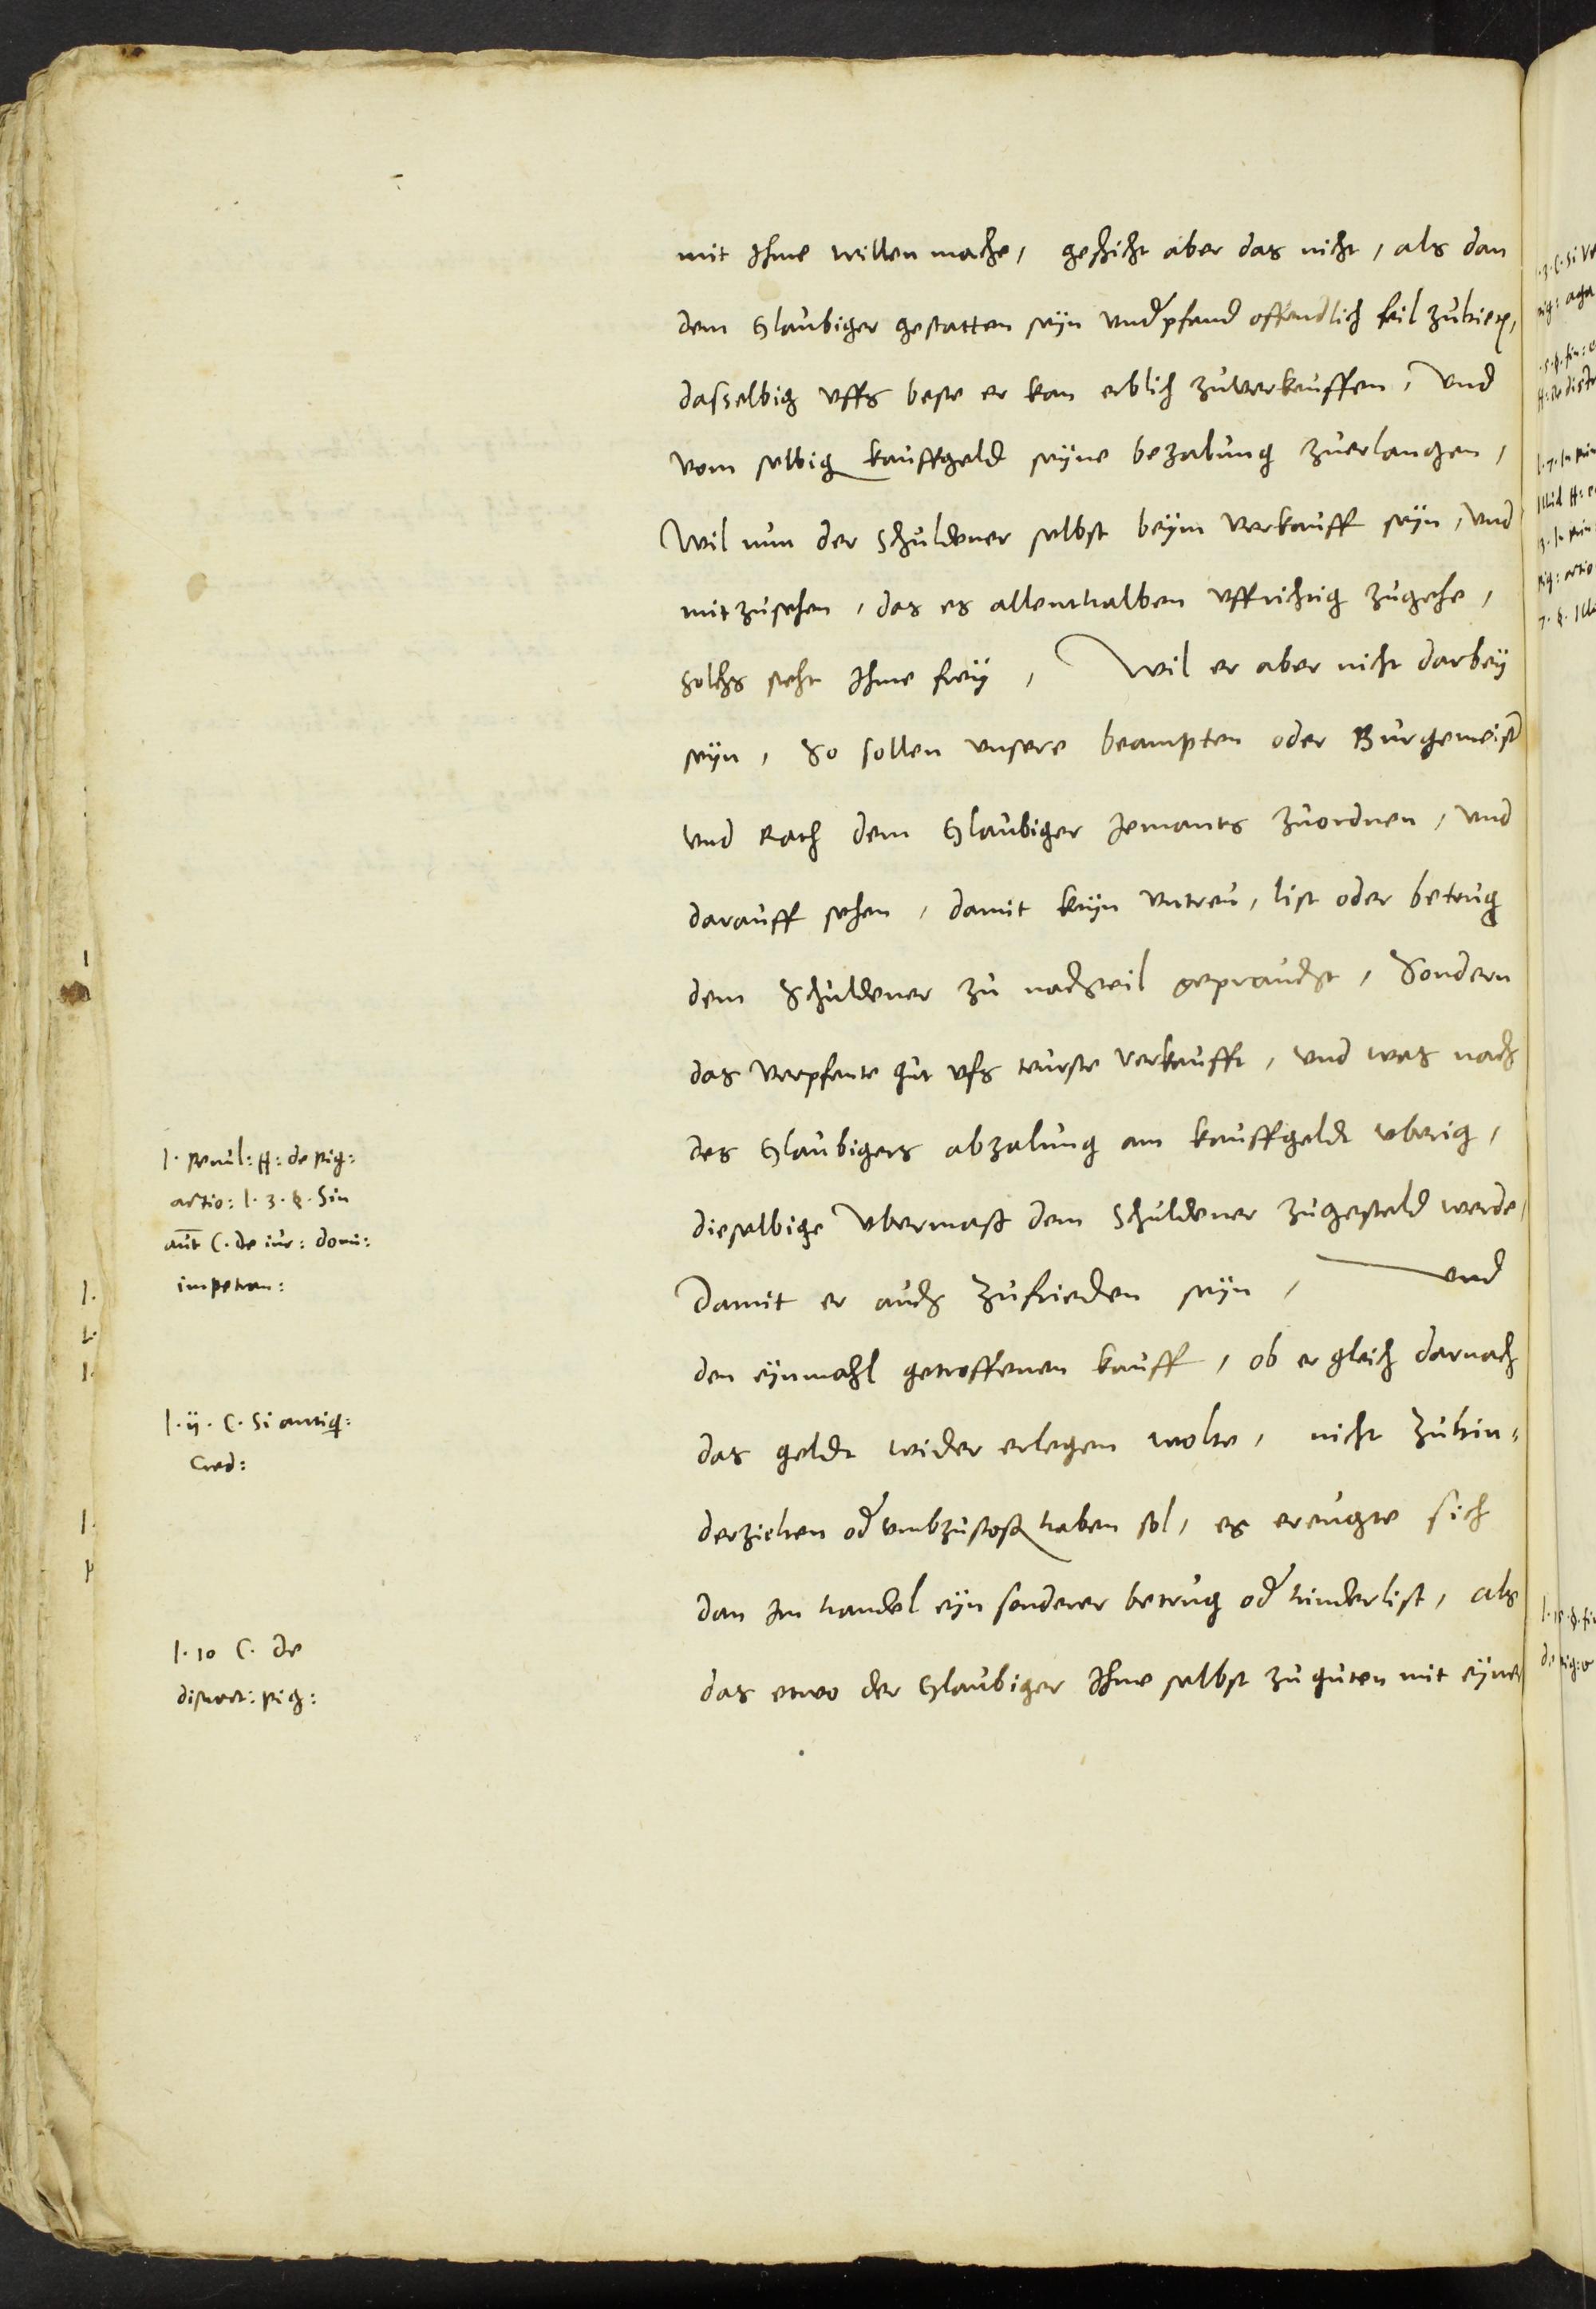 mit Ihme willen mache, geschicht aber das nicht, als dan
dem Glaubiger gestatten seyn underpfand offendlich feil zubieten,
dasselbig uffs beste er kan erblich zuverkauffen, Und
vom selbig kauffgeld seyne bezalung zuerlangen,
Wil nun der Schuldener selbst beym verkauff seyn, und
mitzusehen, das es allenthalben uffrichtig zugehe,
Solchs steht Ihme frey, Wil er aber nicht darbey
seyn, So sollen unsere beampten oder Burgemeister
und Rath dem Glaubiger Jemants zuordnen, und
darauff sehen, damit keyn untreu, list oder betrug
dem Schuldener zu nachteil gepraucht, Sondern
das verpfente gut ufs teurste verkaufft, und was nach
des Glaubigers abzalung am kauffgeldt uberig,
dieselbige ubermaß dem Schuldener zugesteld werde,
Damit er auch zufrieden seyn, und
den eynmahl getroffenen kauff, ob er gleich darnach
das geldt wider erlegen wolte, nicht zuhin-
derziehen oder umbzustossen haben sol, es ereugte sich
dan Im handel eyn sonderer betrug oder hinderlist, als
das etwo der Glaubiger Ihme selbst zu guten mit eyner
l. penul: ff: de pig:
actio: l. 3. §. Sin
aut C. de iur: domi:
impetran:
l. ij. C. Si antiq:
Cred:
l. 10 C. de
distract: pig: